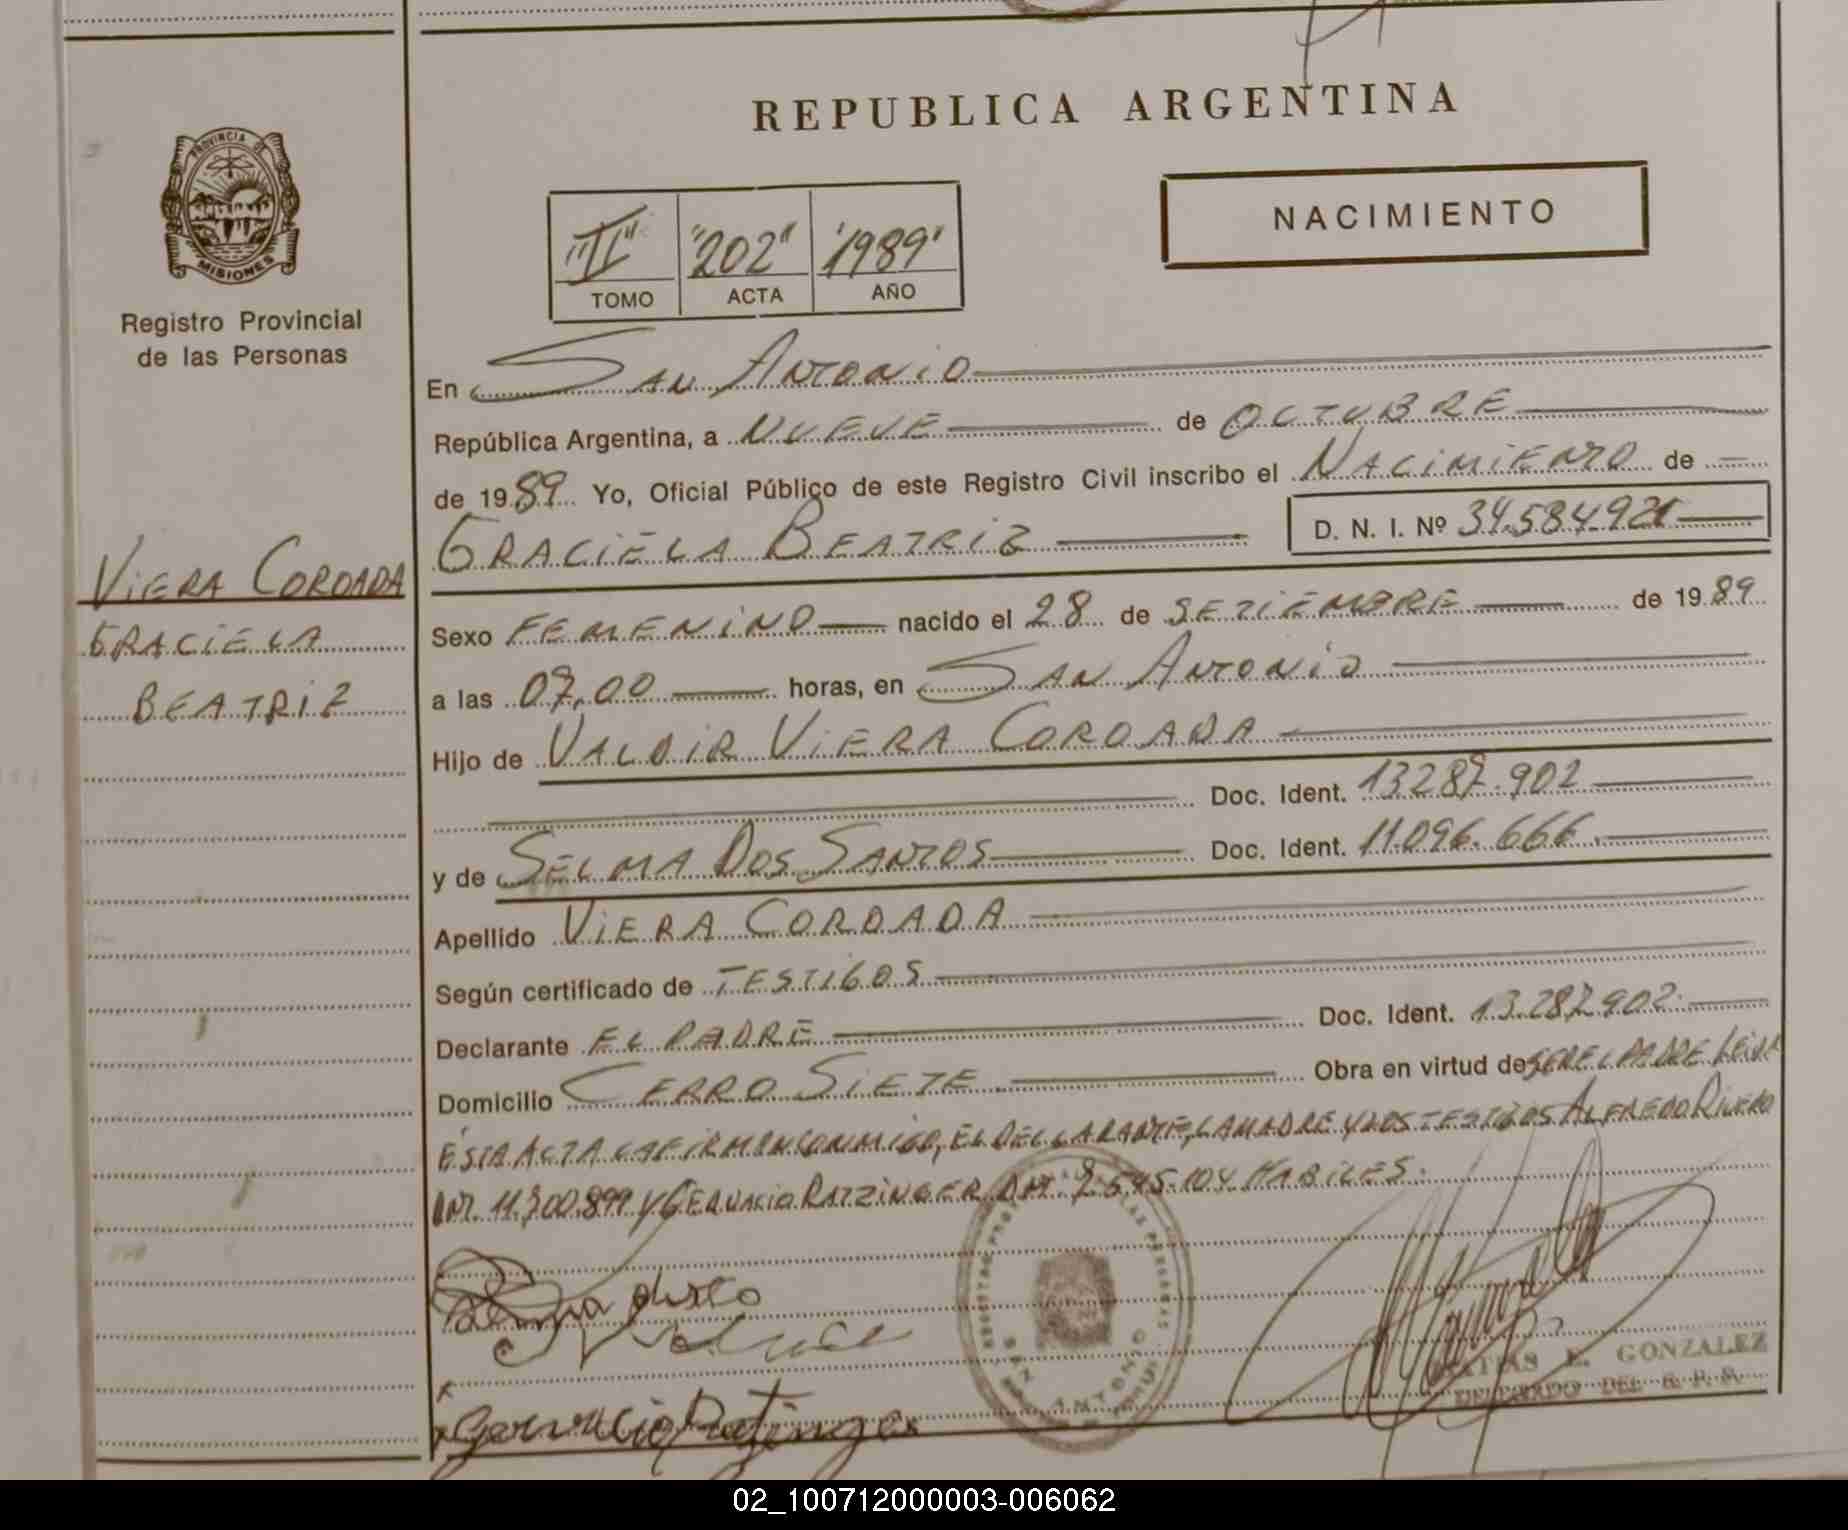 REPUBLICA ARGENTINA
NACIMIENTO
PROVINCIA DE
MISIONES
Registro Provincial
de las Personas
"III" "202" '1989'
TOMO ACTA AÑO
En SAN ANTONIO
República Argentina, a NUEVE de OCTUBRE
de 1989 Yo, Oficial Público de este Registro Civil inscribo el NACIMIENTO de
GRACIELA BEATRIZ D. N. I. Nº 34.584.921
VIERA COROADA
GRACIELA
BEATRIZ
Sexo FEMENINO nacido el 28 de SETIEMBRE de 1989
a las 07,00 horas, en SAN ANTONIO
Hijo de VALDIR VIERA COROADA
Doc. Ident. 13.287.902
y de SELMA DOS SANTOS Doc. Ident. 11.096.666
Apellido VIERA COROADA
Según certificado de TESTIGOS
Declarante EL PADRE Doc. Ident. 13.287.902
Domicilio CERRO SIETE Obra en virtud de SER EL PADRE LEIDA
ESTA ACTA LA FIRMAN CONMIGO, EL DECLARANTE, LA MADRE Y LOS TESTIGOS ALFREDO RIVERO
DNI. 11.300.899 Y GERVACIO RATZINGER DNI. 8.545.104 HABILES.
SAN ANTONIO
Gervacio Ratzinger
MATIAS E. GONZALEZ
DELEGADO DEL R. P. P.
02_100712000003-006062